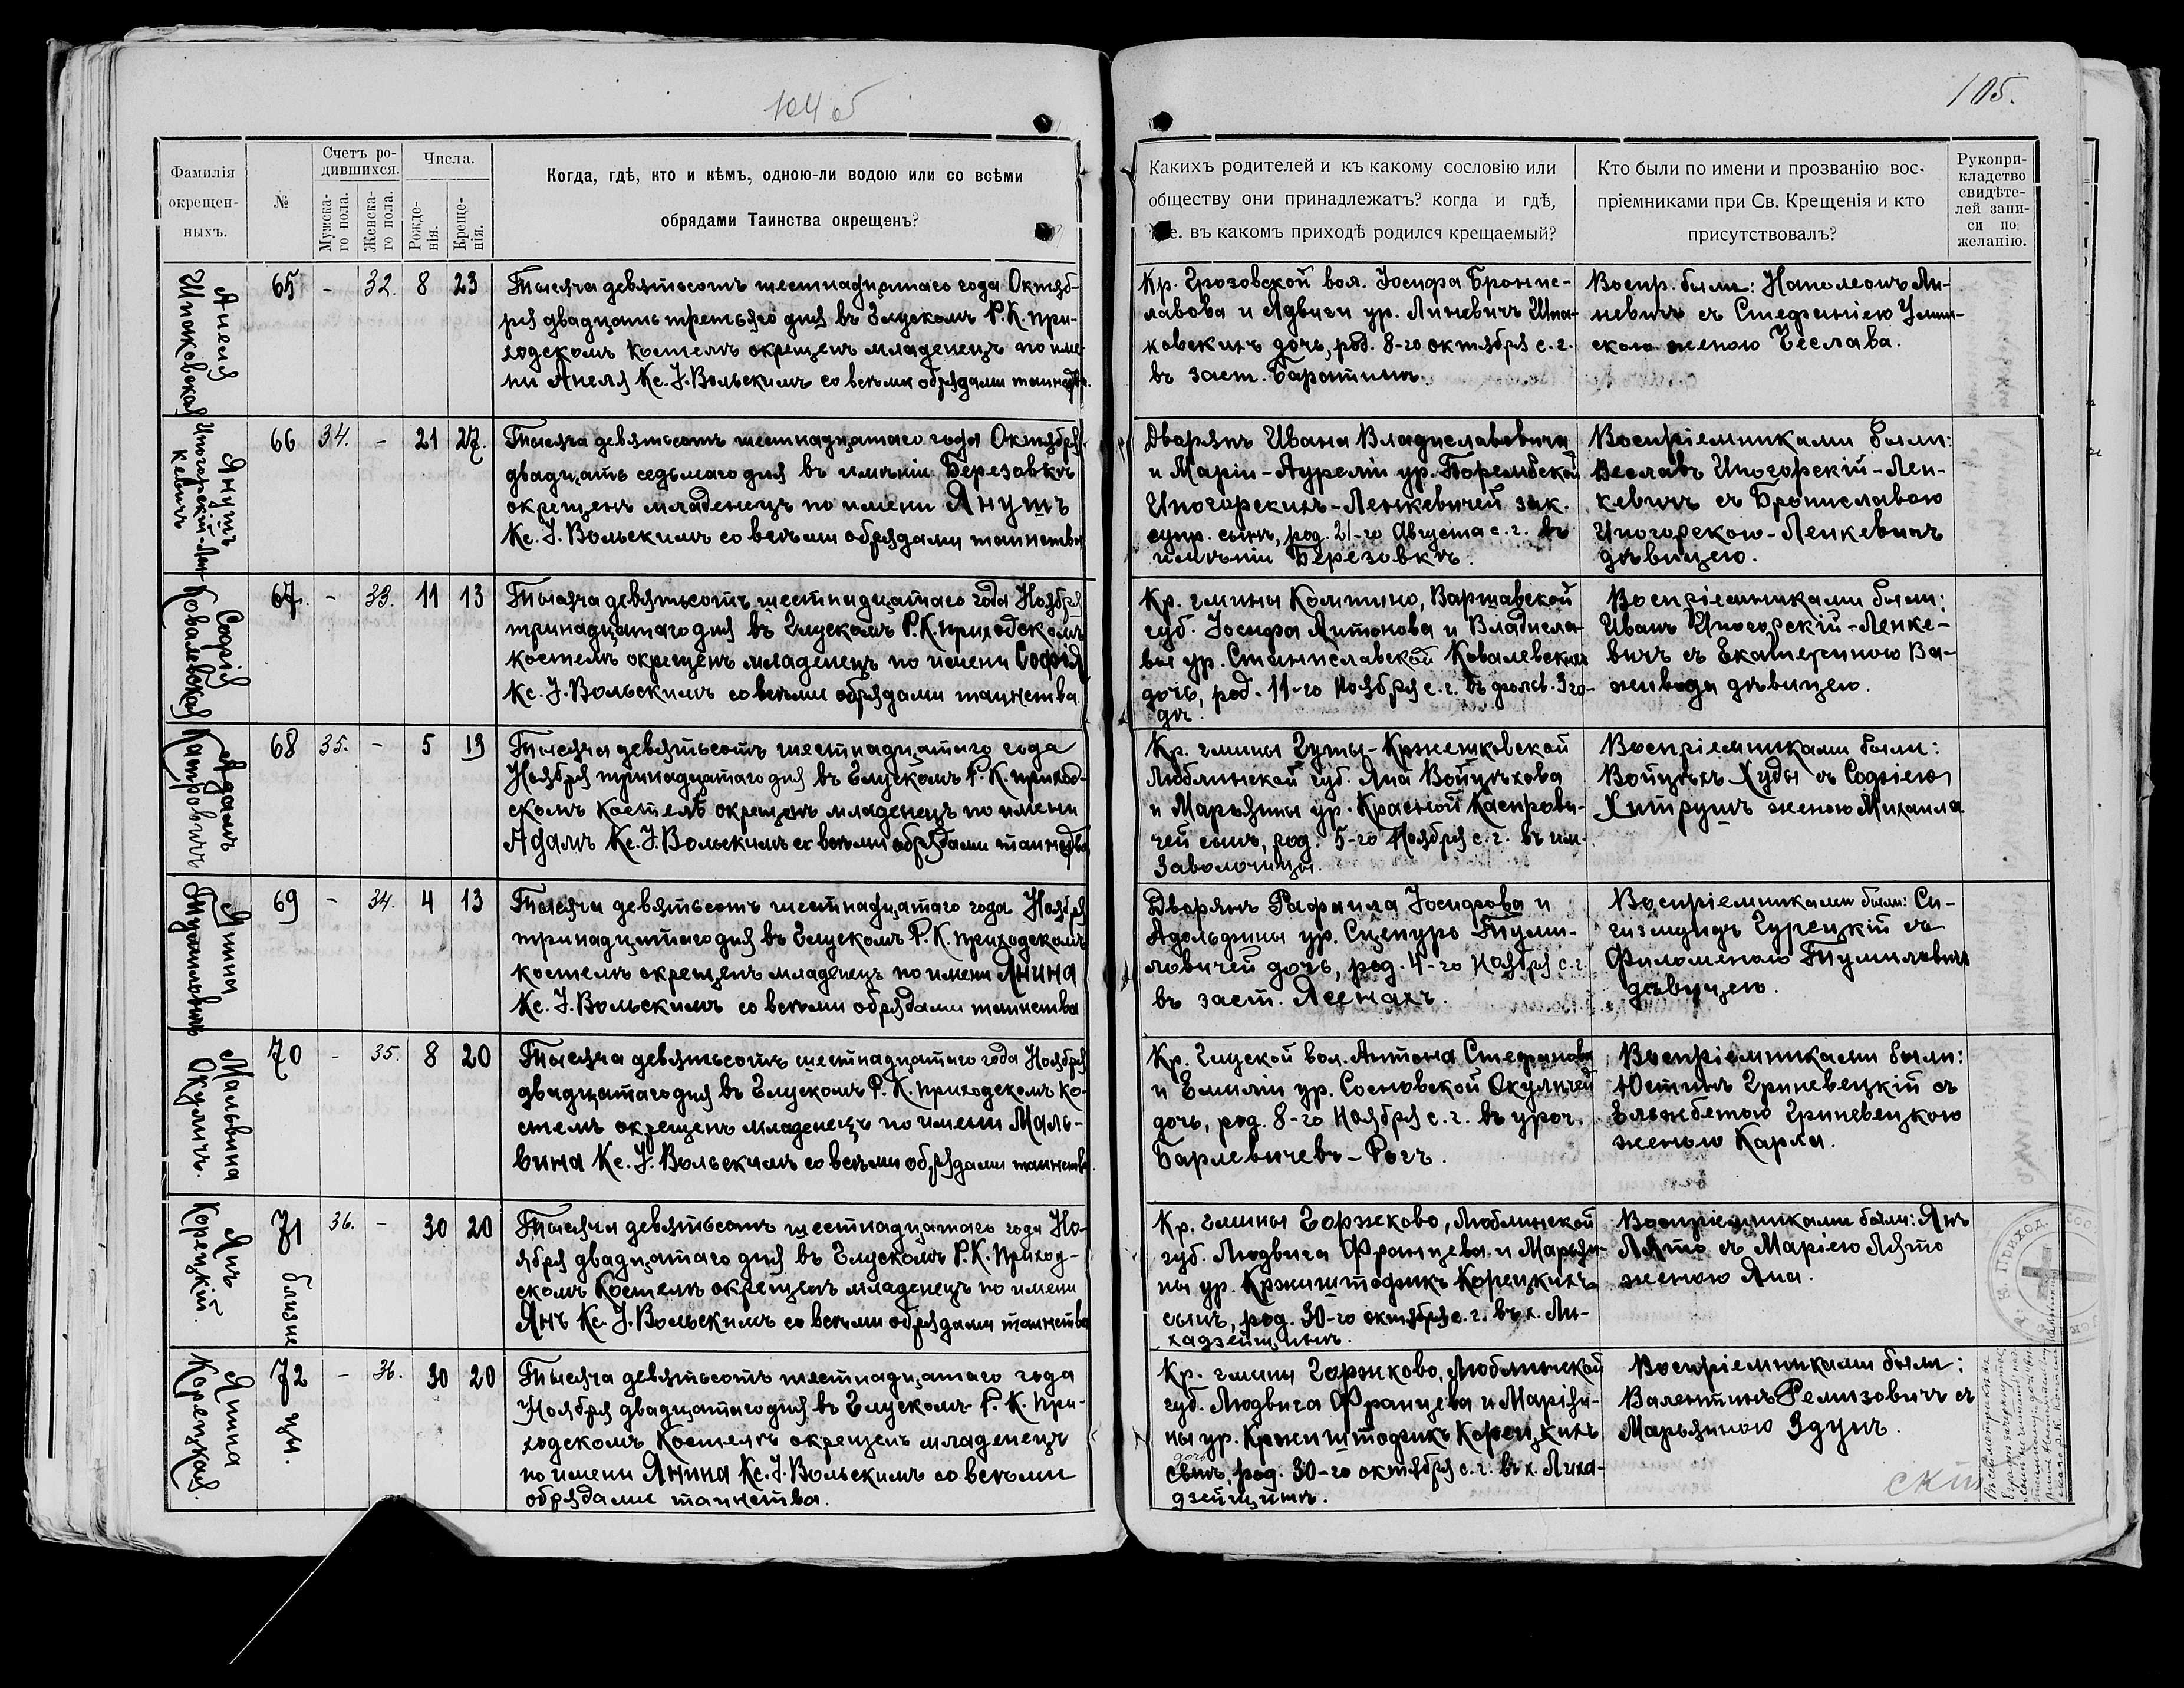 104 об
105.
Фамилія
окрещен-
ныхъ.
№
Счетъ ро-
дившихся.
Мужска-
го пола.
Женска-
го пола.
Числа.
Рожде-
нія.
Креще-
нія.
Когда, гдѣ, кто и кѣмъ, одною-ли водою или со всѣми
обрядами Таинства окрещенъ?
Какихъ родителей и къ какому сословію или
обществу они принадлежатъ? когда и гдѣ,
е. въ какомъ приходѣ родился крещаемый?
Кто были по имени и прозванію вос-
пріемниками при Св. Крещенія и кто
присутствовалъ?
Рукопри-
кладство
свидѣте-
лей запи-
си по
желанію.
Анеля
Шпаковская
65 - 32. 8 23
Тысяча девятьсотъ шестнадцатаго года Октяб-
ря двадцать третьяго дня въ Глускомъ Р.К. при-
ходскомъ костелѣ окрещенъ младенецъ по име-
ни Анеля Кс. І. Вольскимъ со всѣми обрядами таинства.
Кр. Грозовской вол. Іосифа Бронис-
лавова и Ядвиги ур. Линевичъ Шпа-
ковскихъ дочь, род. 8-го октября с. г.
въ заст. Баратинѣ.
Воспр. были: Наполеонъ Ли-
невичъ съ Стефаніею
скою женою Чеслава.
Янушъ
Иногорскій-Лен-
кевичъ
66 34. - 21 27.
Тысяча девятьсотъ шестнадцатаго года Октября
двадцать седьмаго дня въ имѣніи Березовкѣ
окрещенъ младенецъ по имени Янушъ
Кс. І. Вольскимъ со всѣми обрядами таинства
Дворянъ Ивана Владиславовича
и Маріи-Аурелии ур.
Ипогорскихъ-Ленкевичей зак.
супр. сынъ, род. 21-го Августа с. г. въ
имѣніи Березовкѣ.
Воспріемниками были:
Веславъ Ипогорскій-Лен-
кевичъ съ Брониславою
Ипогорскою-Ленкевичъ
дѣвицею.
Софія
Ковалевская
67. - 33. 11 13
Тысяча девятьсотъ шестнадцатаго года Ноября
тринадцатаго дня въ Глускомъ Р.К. приходскомъ
костелѣ окрещенъ младенецъ по имени Софія
Кс. І. Вольскимъ со всѣми обрядами таинства
Кр. гмины Компино, Варшавской
губ. Іосифа Антонова и Владисла-
вы ур. Станиславской Ковалевскихъ
дочь, род. 11-го Ноября с. г. въ фольв. Зго-
дѣ.
Воспріемниками были:
Иванъ Ипогорскій-Ленке-
вичъ съ Екатериною Ва-
дѣвицею.
Адамъ
Каспровичъ
68 35. - 5 13
Тысяча девятьсотъ шестнадцатаго года
Ноября тринадцатаго дня въ Глускомъ Р. К. приход-
скомъ костелѣ окрещенъ младенецъ по имени
Адамъ Кс. І. Вольскимъ со всѣми обрядами таинства
Кр. гмины Гуты-Кржешковской
Люблинской губ. Яна Войцѣхова
и Марьянны ур. Красной Каспрови-
чей сынъ, род. 5-го Ноября с. г. въ им.
Заволочицы.
Воспріемниками были:
Войцѣхъ Худы съ Софіею
Хитрушъ женою Михаила
Янина
Тумиловичъ
69 - 34. 4 13
Тысяча девятьсотъ шестнадцатаго года Ноября
тринадцатаго дня въ Глускомъ Р. К. приходскомъ
костелѣ окрещенъ младенецъ по имени Янина
Кс. І. Вольскимъ со всѣми обрядами таинства
Дворянъ Рафаила Іосифова и
Адольфины ур. Сцепуро Туми-
ловичей дочь, род. 4-го Ноября с. г.
въ заст. Ясенахъ.
Воспріемниками были: Си-
гизмундъ Гурецкій съ
Филоменою Тумиловичъ
дѣвицею.
Мальвина
Окуличъ.
70 - 35. 8 20
Тысяча девятьсотъ шестнадцатаго года Ноября
двадцатаго дня въ Глускомъ Р. К. приходскомъ ко-
стелѣ окрещенъ младенецъ по имени Маль-
вина Кс. І. Вольскимъ со всѣми обрядами таинства.
Кр. Глуской вол. Антона Стефанова
и Емиліи ур. Сосновской Окуличей
дочь, род. 8-го Ноября с. г. въ уроч.
Барлевичевъ-Рогъ.
Воспріемниками были:
Юстинъ Гриневецкій съ
Ельжбетою Гриневецкою
женою Карла.
Янъ
Корецкій.
71 близне 36. - 30 20
Тысяча девятьсотъ шестнадцатаго года Но-
ября двадцатаго дня въ Глускомъ Р.К. приход-
скомъ костелѣ окрещенъ младенецъ по имени
Янъ Кс. І. Вольскимъ со всѣми обрядами таинства
Кр. гмины Горжково, Люблинской
губ. Людвига Францева и Марьян-
ны ур. Кржиштофикъ Корецкихъ
сынъ, род. 30-го октября с. г. въ х. Ли-
хадзейщинѣ.
Воспріемниками были: Янъ
Лято съ Маріею Лято
женою Яна.
Янина
Корецкая.
72 цы. - 36. 30 20
Тысяча девятьсотъ шестнадцатаго года
Ноября двадцатаго дня въ Глускомъ Р. К. при-
ходскомъ костелѣ окрещенъ младенецъ
по имени Янина Кс. І. Вольскимъ со всѣми
обрядами таинства.
Кр. гмины Горжково, Люблинской
губ. Людвига Францева и Маріан-
ны ур. Кржиштофикъ Корецкихъ
дочь
сынъ, род. 30-го октября с. г. въ х. Лиха-
дзейщинѣ.
Воспріемниками были:
Валентинъ Ремизовичъ съ
Марьянною Здунъ.